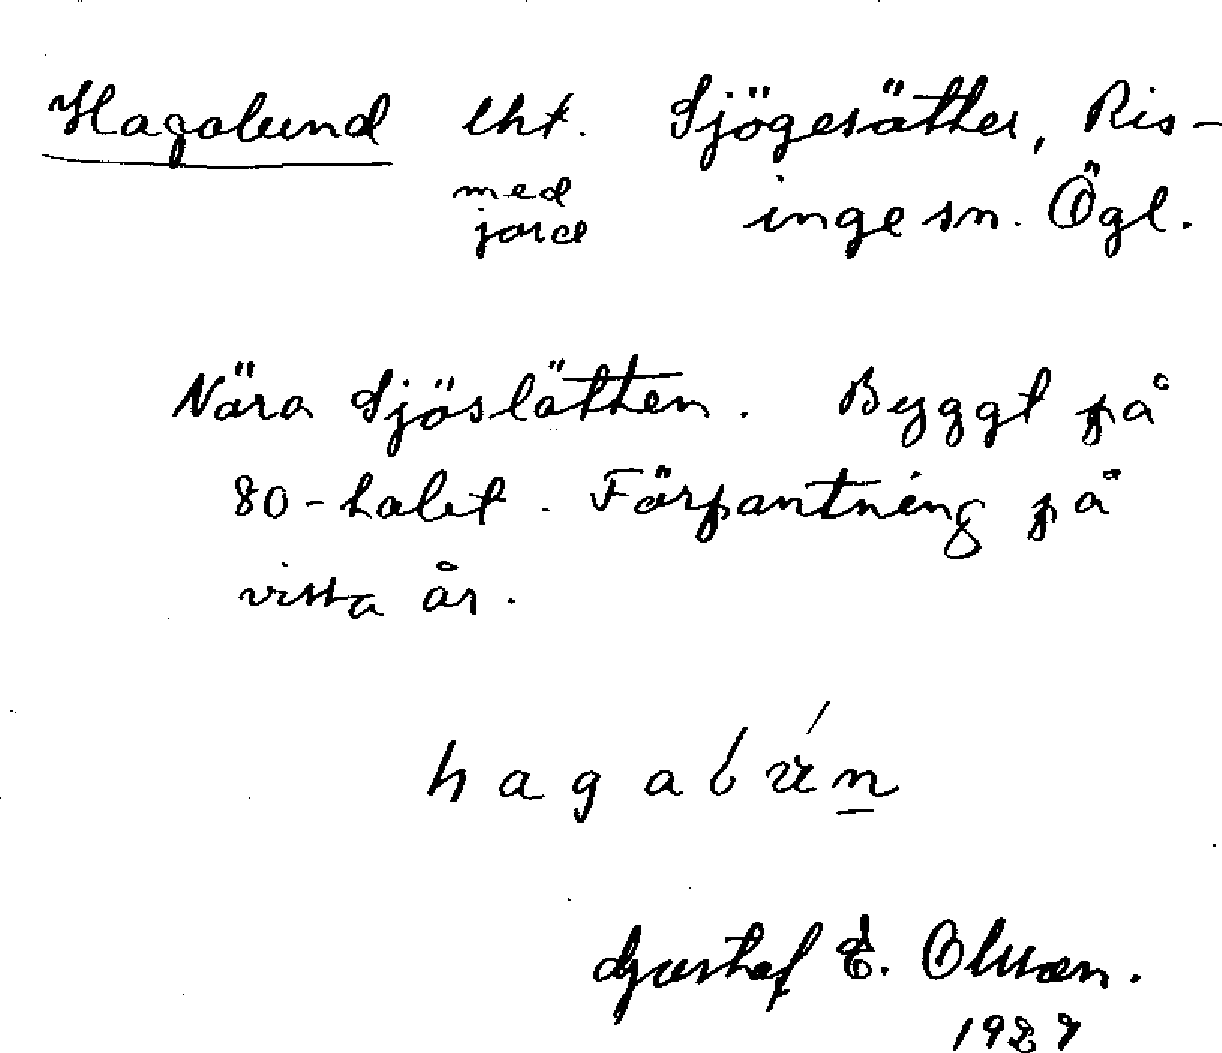 Hagalund lht. Sjögesätter, Ris-
med jord inge sn. Ögl.
Nära Sjöslätten. Byggt på
80-talet. Förpantning på
vissa år.
Gustaf E. Olsson.
1927